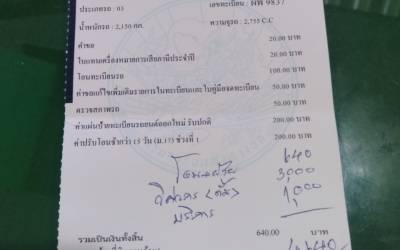 ประเภทรถ : 03 เลขทะเบียน : ผพ 9837
น้ำหนักรถ : 2,150 กก. ความจุรถ : 2,755 C.C
ค่าขอ 20.00 บาท
ใบแทนเครื่องหมายการเสียภาษีประจำปี 20.00 บาท
โอนทะเบียนรถ 100.00 บาท
ค่าขอแก้ไขเพิ่มเติมรายการในทะเบียนและใบคู่มือจดทะเบียน 50.00 บาท
ตรวจสภาพรถ 50.00 บาท
ค่าแผ่นป้ายทะเบียนรถยนต์ออกใหม่ รับปกติ 200.00 บาท
ค่าปรับโอนช้ากว่า 15 วัน (ม.17) ช่วงที่ 1 200.00 บาท
640
3,000
1,000
บริการ
รวมเป็นเงินทั้งสิ้น 640.00 บาท
4,640